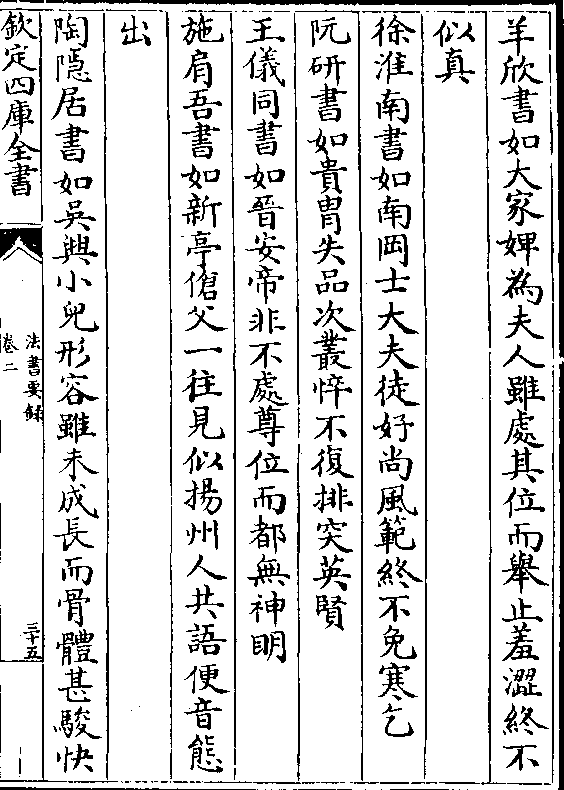 羊欣書如大家婢為夫人雖處其位而舉止羞澀終不
似真
徐淮南書如南岡士大夫徒好尚風範終不免寒乞
阮研書如貴胄失品次叢悴不復排突英賢
王儀同書如晉安帝非不處尊位而都無神明
施肩吾書如新亭傖父一往見似揚州人共語便音態
出
陶隱居書如吳興小兒形容雖未成長而骨體甚駿快
欽定四庫全書
法書要錄
卷二
三十五